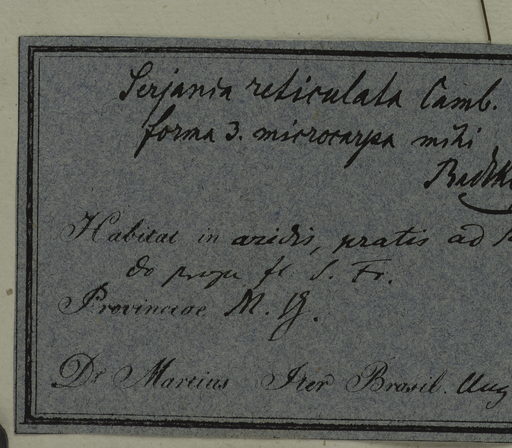 Serjania reticulata Camb.
forma 3. microcarpa mihi
Radlk
Habitat in aridis, pratis ad
do prope fl. S. Fr.
Provinciae M. G.
Dr Martius Iter Brasil. Aug